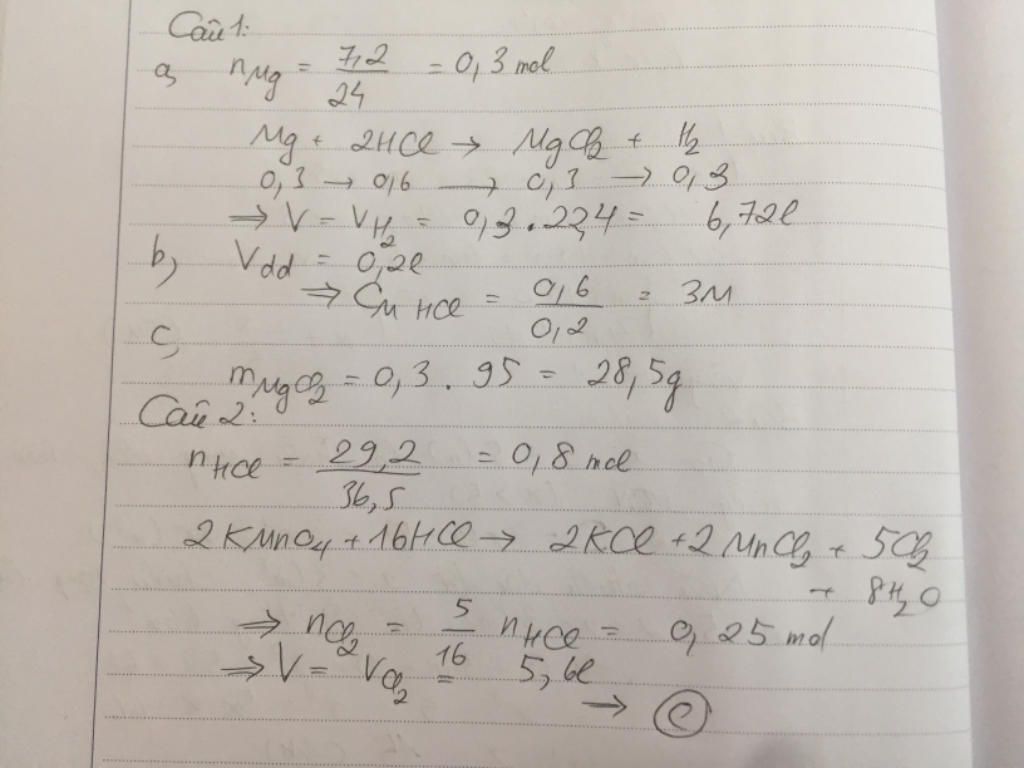 Câu 1:
a, nMg = 7,2/24 = 0,3 mol
Mg + 2HCl → MgCl2 + H2
0,3 → 0,6 → 0,3 → 0,3
⇒ V = VH2 = 0,3 . 22,4 = 6,72l
b, Vdd = 0,2l
⇒ CM HCl = 0,6/0,2 = 3M
c,
mMgCl2 = 0,3 . 95 = 28,5g
Câu 2:
nHCl = 29,2/36,5 = 0,8 mol
2KMnO4 + 16HCl → 2KCl + 2MnCl2 + 5Cl2
+ 8H2O
⇒ nCl2 = 5/16 nHCl = 0,25 mol
⇒ V = VCl2 = 5,6l
→ C